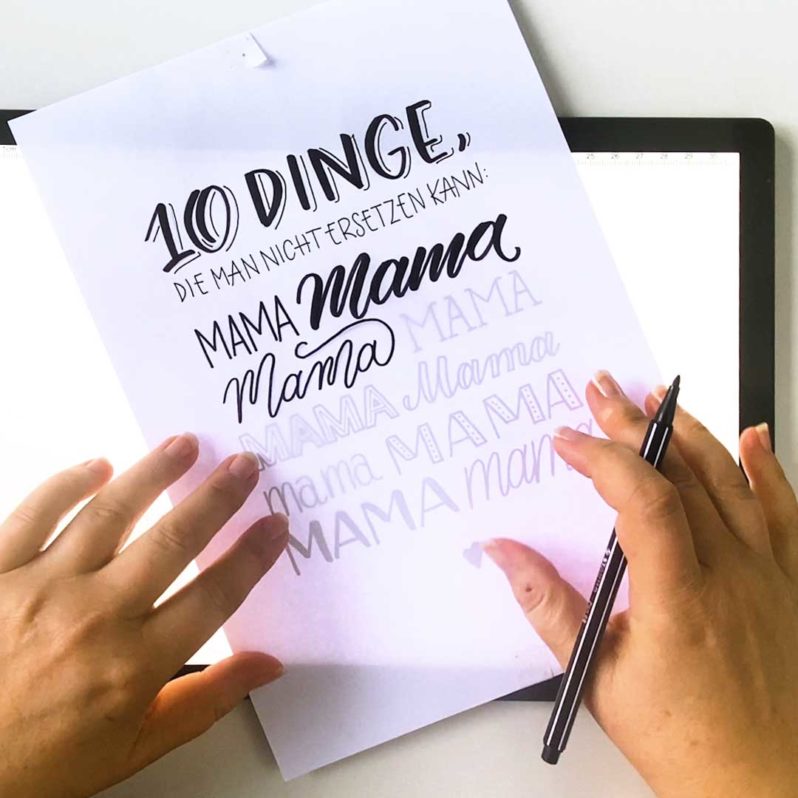 10 DINGE,
DIE MAN NICHT ERSETZEN KANN:
MAMA Mama
Mama MAMA
MAMA Mama
mama MAMA
MAMA mama
25 26 27 28 29 30